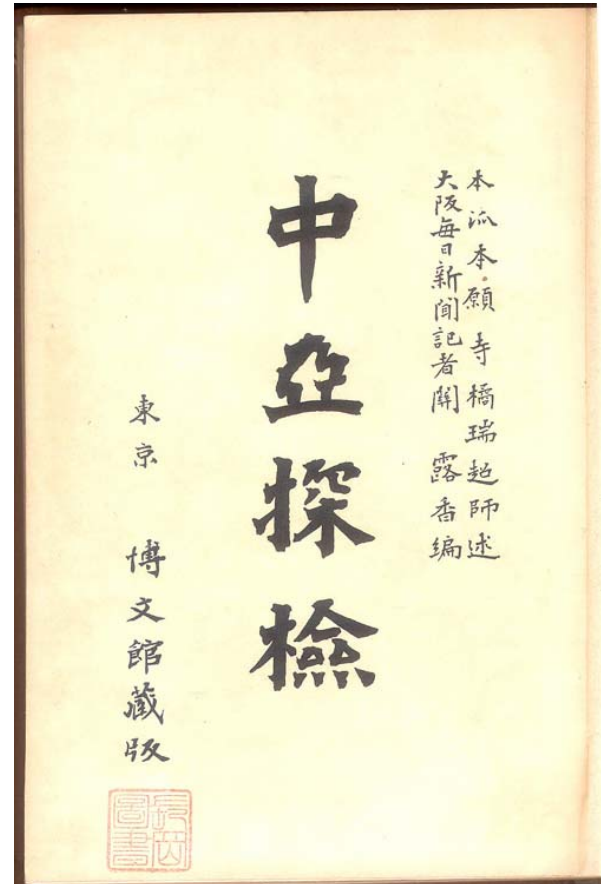 本派本願寺橘瑞超師述
大阪毎日新聞記者關 露香編
中亞探檢
東京 博文館藏版